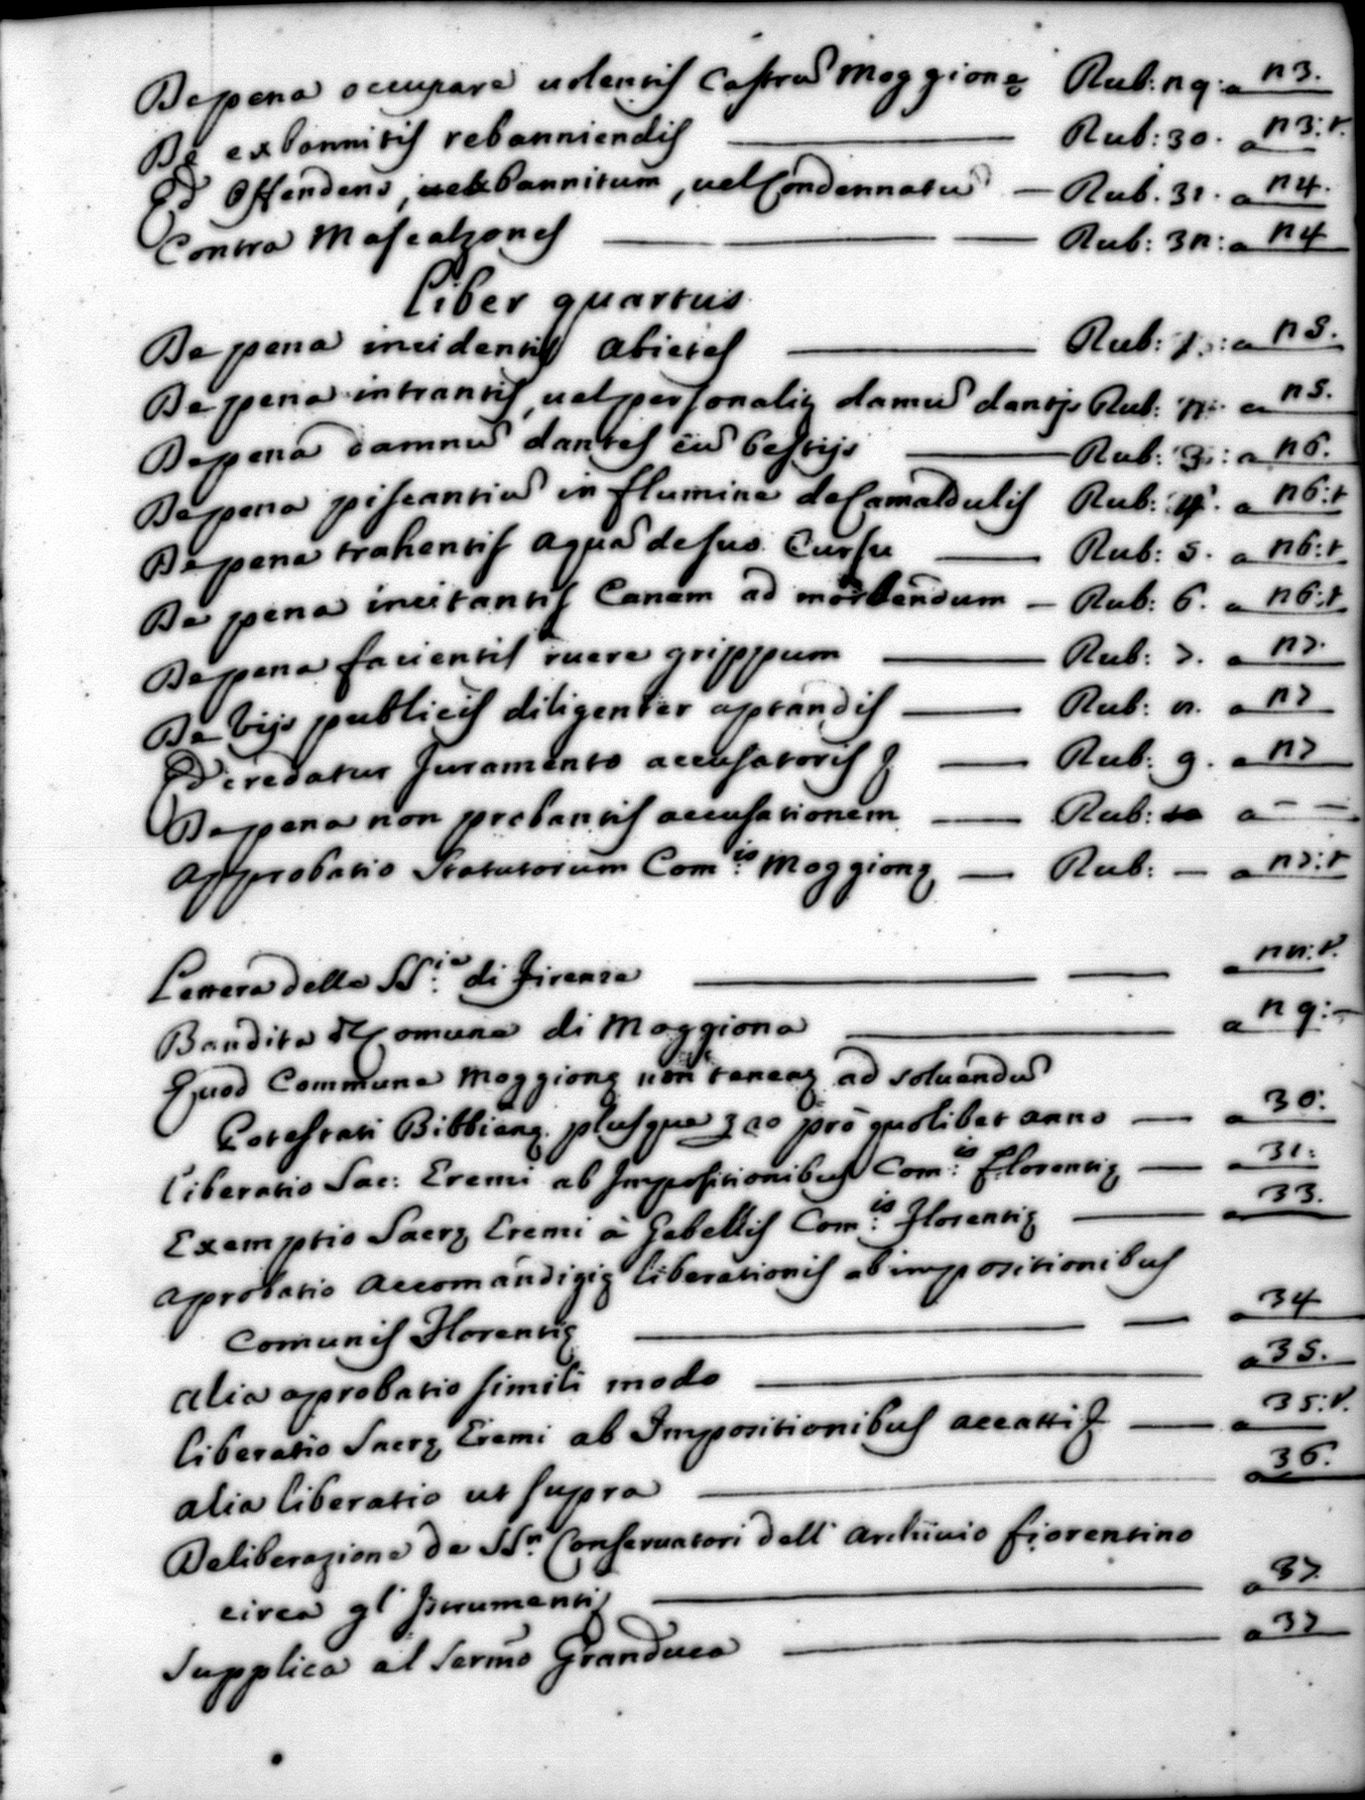 De pena occupare uolentis Castrũ Moggionę Rub: 29: a 23.
De exbannitis rebanniendis Rub: 30. a 23:t.
Et offendens, uel bannitum, uel Condennatũ Rub. 31. a 24.
Contra Mascalzones Rub: 32: a 24
Liber quartus
De pena incidentis abietes Rub: 1: a 25.
De pena intrantis, uel personalit̃ damũ dantis Rub: 2. a 25.
De pena damnũ dantes cũ bestijs Rub: 3: a 26.
De pena piscantiũ in flumine de Camaldulis Rub: 4. a 26:t
De pena trahentis aquã de suo Cursu Rub: 5. a 26:t
De pena incitantis Canem ad mordendum Rub: 6. a 26:t
De pena facientis ruere grippum Rub: 7. a 27.
De Vijs publicis diligenter aptandis Rub: 8. a 27
Et credatur Juramento accusatoris Rub: 9. a 27
De pena non probantis accusationem Rub: 10 a — —
Approbatio Statutorum Com:is Moggionę Rub: — a 27:t
Lettera della SS:ia di Firenze a 28:t.
Bandita del Comune di Moggiona a 29:
Quod Commune Moggionę non teneat̃ ad soluendũ
Potestati Bibbienę plusque £ 20 pro quolibet anno a 30.
Liberatio Sac: Eremi ab Impositionibus Com:is Florentię a 31:
Exemptio Sacrę Eremi à Gabellis Com:is Florentię a 33.
Aprobatio accomandigię liberationis ab impositionibus
Comunis Florentię a 34
Alia aprobatio simili modo a 35.
Liberatio Sacrę Eremi ab Impositionibus accatti a 35:t.
Alia liberatio ut supra a 36.
Deliberazione de SS:ri Conseruatori dell' Archiuio fiorentino
circa gl' Istrumenti a 37
Supplica al Sermõ Granduca a 37